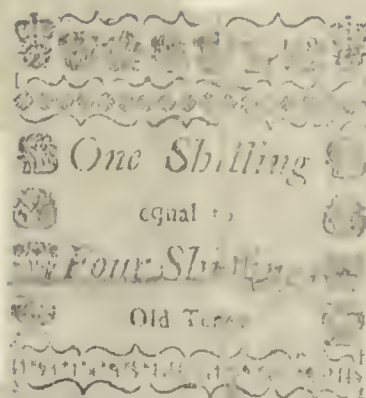 One Shilling
equal to
Four Shillings
Old Tenor